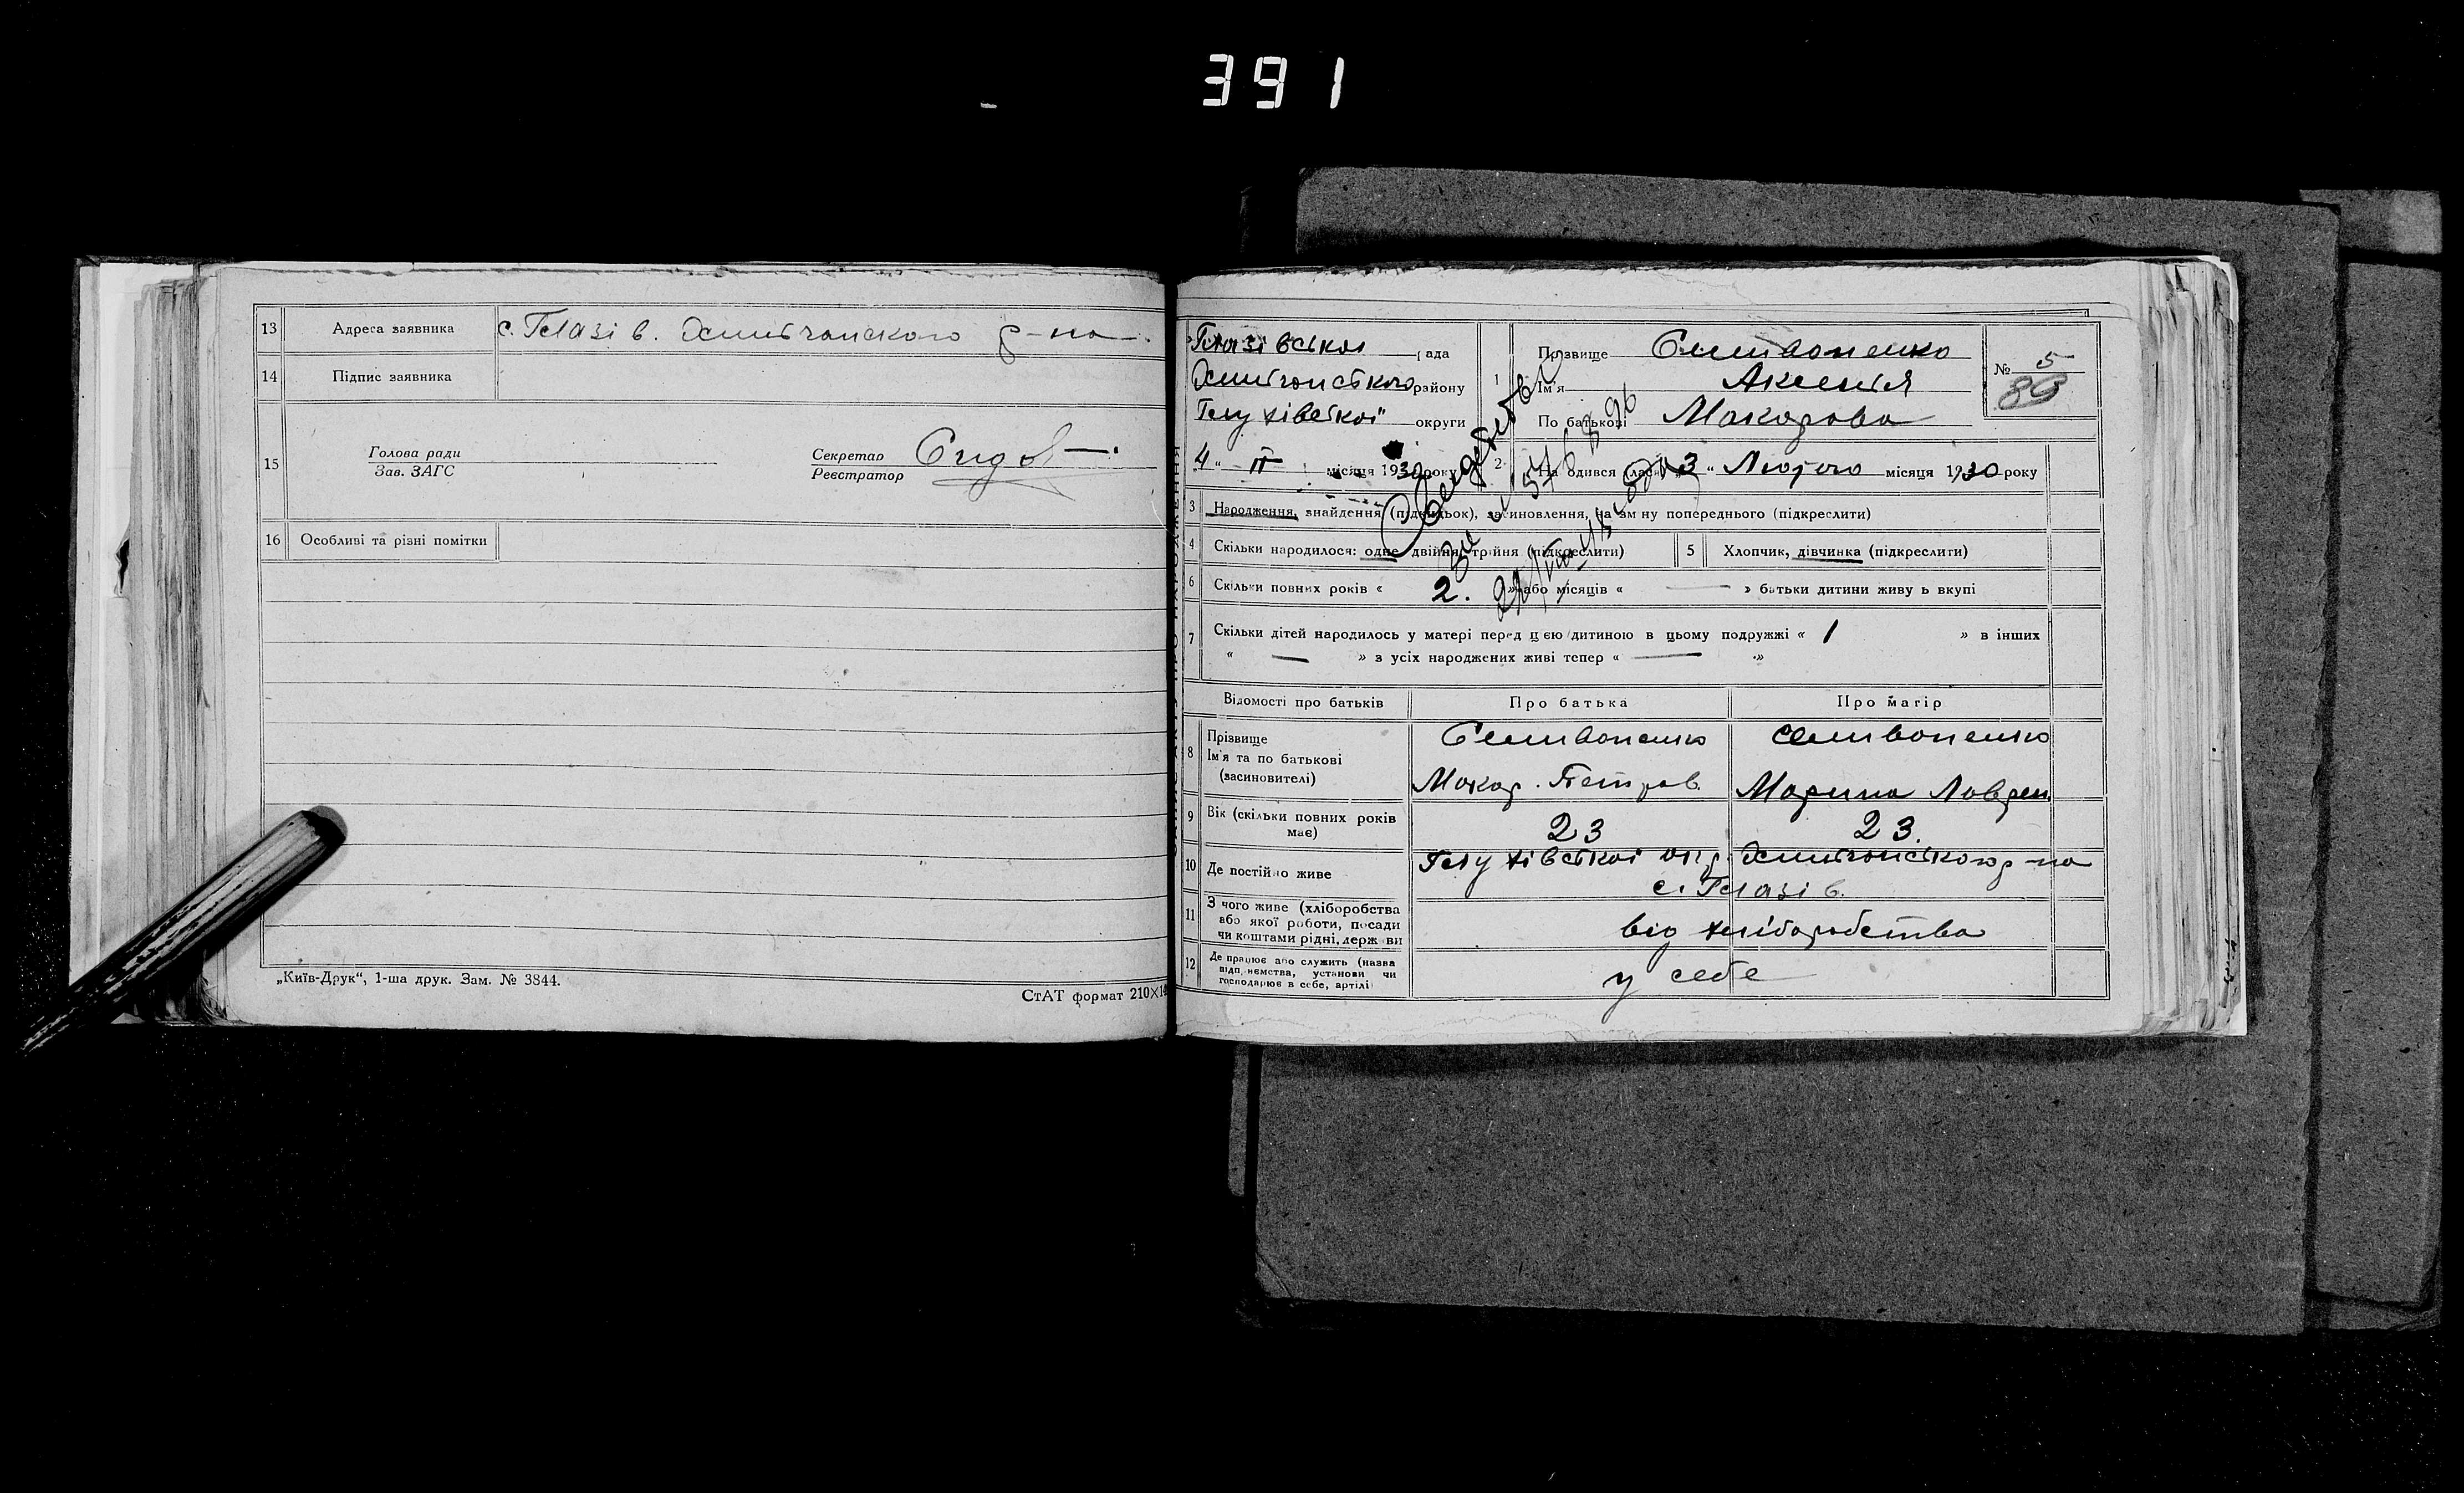 391
13 Адреса заявника с. Глазів. Есманського р-на.
14 Підпис заявника
15 Голова ради
Зав. ЗАГС
Секретар
Реєстратор
16 Особливі та різні помітки
„Київ-Друк“, 1-ша друк. Зам. № 3844.
СтАТ формат 210×14
Глазівської рада
району
Глухівської округи
4 " II місяця 1930 року
1 Прізвище Селивоненко
Ім'я Аксенія
По батькові Макарова
№ 5
89
2 На одився 3 " Лютого місяця 1930 року
3 Народження, знайдення (підкидьок), засиновлення, на зм ну попереднього (підкреслити)
4 Скільки народилося: одне двійня, трійня (підкреслити) 5 Хлопчик, дівчинка (підкреслити)
6 Скільки повних років « 2. » або місяців « — » батьки дитини живу ь вкупі
7 Скільки дітей народилось у матері перед цією дитиною в цьому подружжі « 1 » в інших
« — » з усіх народжених живі тепер « — »
Відомості про батьків Про батька Про матір
8 Прізвище Селивоненко Селивоненко
Ім'я та по батькові
(засиновителі) Макар. Петров. Марина Лаврен.
9 Вік (скільки повних років має) 23 23.
10 Де постійно живе Глухівської окр. р-на
с. Глазів.
11 З чого живе (хліборобства
або якої роботи, посади
чи коштами рідні, держ ви від хліборобства
12 Де працює або служить (назва
підп, ємства, установи чи
господарює в себе, артілі) у себе